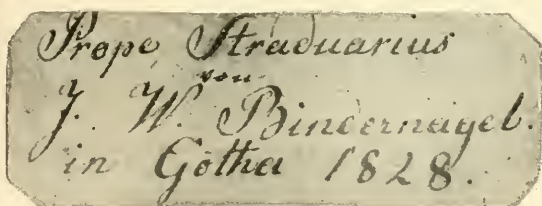 Prope Straduarius
von
J. W. Bindernagel.
in Gotha 1828.